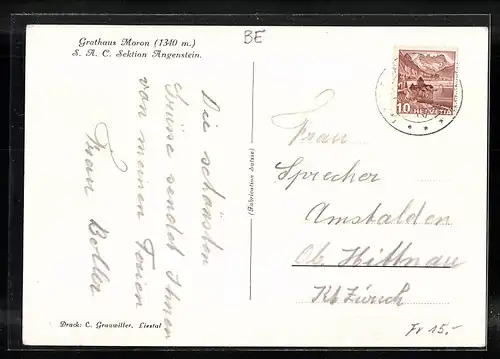 Grathaus Moron (1340 m.)
S. A. C. Sektion Angenstein.
BE
10 HELVETIA
Die schönsten
Grüsse sendet Ihnen
von meinen Ferien
Frau Boller
(Fabrication Suisse)
Frau
Sprecher
Amstalden
Ob. Hittnau
Kt Zürich
Druck: C. Grauwiller, Liestal
Fr 15.-